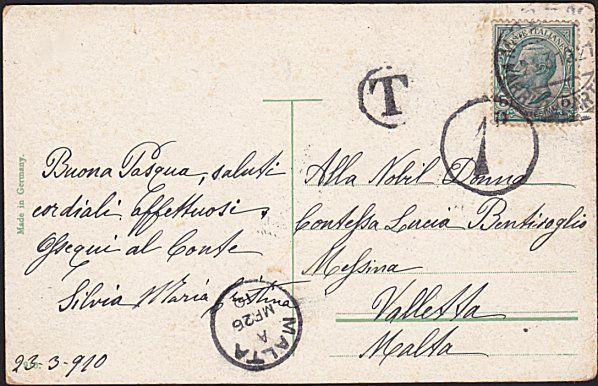 POSTE ITALIANE
T
1
Made in Germany.
Buona Pasqua, saluti
cordiali, affettuosi,
Ossequi al Conte
Silvia Maria
23-3-910
Alla Nobil Donna
Contessa Lucia Bentivoglio
Messina
Valletta
Malta
MALTA
A
MR 26
10